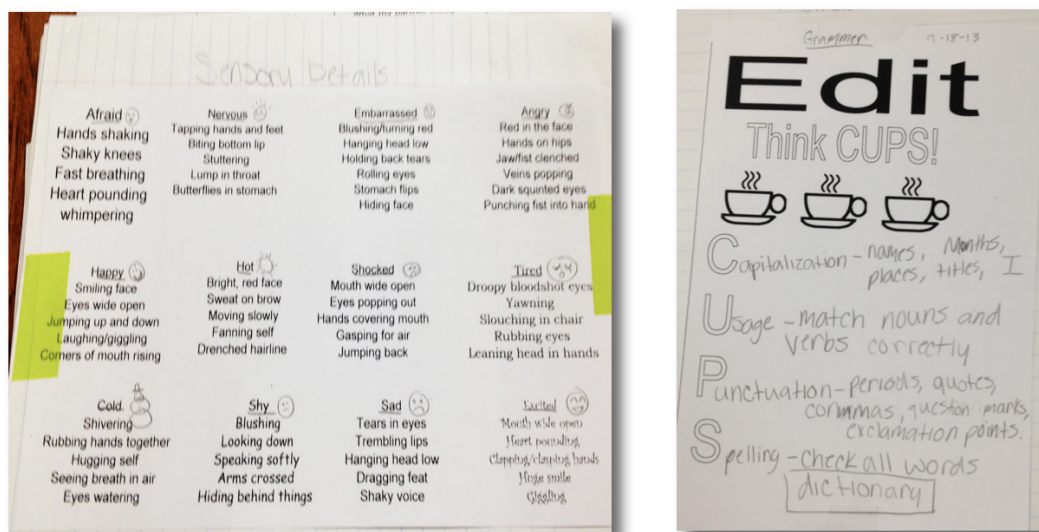 Sensory Details
Afraid
Hands shaking
Shaky knees
Fast breathing
Heart pounding
whimpering
Nervous
Tapping hands and feet
Biting bottom lip
Stuttering
Lump in throat
Butterflies in stomach
Embarrassed
Blushing/turning red
Hanging head low
Holding back tears
Rolling eyes
Stomach flips
Hiding face
Angry
Red in the face
Hands on hips
Jaw/fist clenched
Veins popping
Dark squinted eyes
Punching fist into hand
Happy
Smiling face
Eyes wide open
Jumping up and down
Laughing/giggling
Corners of mouth rising
Hot
Bright, red face
Sweat on brow
Moving slowly
Fanning self
Drenched hairline
Shocked
Mouth wide open
Eyes popping out
Hands covering mouth
Gasping for air
Jumping back
Tired
Droopy bloodshot eyes
Yawning
Slouching in chair
Rubbing eyes
Leaning head in hands
Cold
Shivering
Rubbing hands together
Hugging self
Seeing breath in air
Eyes watering
Shy
Blushing
Looking down
Speaking softly
Arms crossed
Hiding behind things
Sad
Tears in eyes
Trembling lips
Hanging head low
Dragging feat
Shaky voice
Excited
Mouth wide open
Heart pounding
Clapping/clasping hands
Huge smile
Giggling
Grammer 9-18-13
Edit
Think CUPS!
Capitalization - names, Months,
places, titles, I
Usage - match nouns and
verbs correctly
Punctuation - periods, quotes,
commas, question marks,
exclamation points.
Spelling - check all words
dictionary